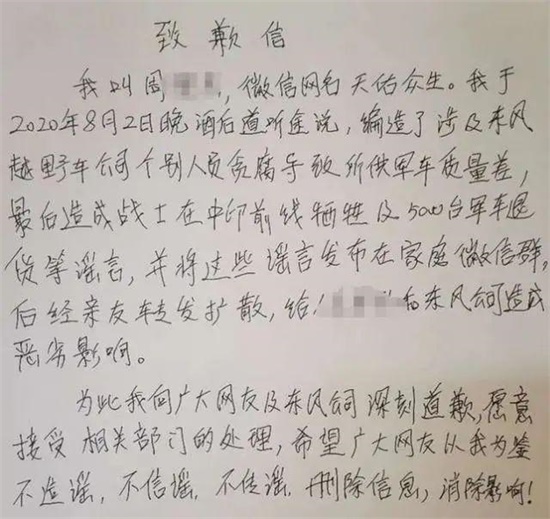 致歉信
我叫周，微信网名天佑众生。我于
2020年8月2日晚酒后道听途说，编造了涉及东风
越野车公司个别人员贪腐导致所供军车质量差，
最后造成战士在中印前线牺牲及5000台军车退
货等谣言，并将这些谣言发布在家庭微信群，
后经亲友转发扩散，给和东风公司造成
恶劣影响。
为此我向广大网友及东风公司深刻道歉，愿意
接受相关部门的处理，希望广大网友以我为鉴
不造谣，不信谣，不传谣，删除信息，消除影响！